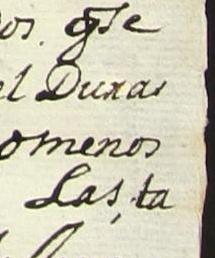 os. qse
el Duxar
omenos
Las, ta